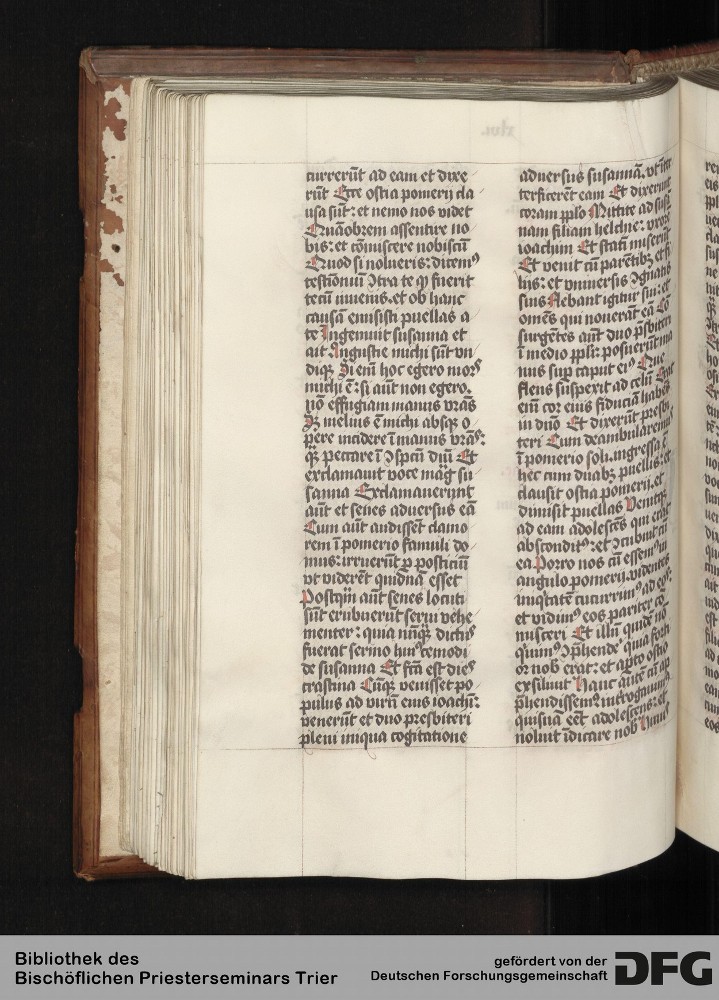 currerūt ad eam et dixe
rūt Ecce ostia pomerij cla
usa sūt: et nemo nos videt
Quāobrem assentire no
bis: et cōmiscere nobiscū
Quod si nolueris: dicemꝰ
testioniū ꝯtra te ꝙ fuerit
tecū iuuenis. et ob hanc
causā emisisti puellas a
te Ingemuit susanna et
ait Angustie michi sūt vn
diqꝫ Si eni hoc egero mors
michi ē: si aūt non egero.
nō effugiam manus vrās
Sꝫ melius ē michi absqꝫ o
pere incidere ī manus vrās:
qꝫ peccare ī ꝯspcū dnī Et
exclamauit voce mag su
sanna Exclamauerunt
aūt et senes aduersus eā
Cum aūt audisset clamo
rem ī pomerio famuli do
mus: irruerūt ꝑ posticiū
vt viderēt quidnā esset
Postqm aūt senes locuti
sūt erubuerūt serui vehe
menter: quia nūqꝫ dictus
fuerat sermo huiꝰcemodi
de susanna Et fcā est dies
crastina Cūqꝫ venisset po
pulus ad virū eius ioachī:
venerūt et duo presbiteri
pleni iniqua cogitatione
aduersus susannā. vt īter
ficerēt eam Et dixerūt
coram pplo Mittite ad susā
nam filiam helchie: vxorē
ioachim Et statī miserūt
Et venit cū parētibꝫ et fi
liis: et vniuersis ꝯgnatis
suis Flebant igitur sui: et
omēs qui nouerāt eā Cō
surgētes aūt duo p̄sbiteri
ī medio ppli: posuerūt ma
nus sup caput eiꝰ Que
flens suspexit ad celū Erat
eni cor eius fiduciā habēs
in dnō Et dixerūt presbi
teri Cum deambularemus
ī pomerio soli. ingressa ē
hec cum duabꝫ puellis: et
clausit ostia pomerij. et
dimisit puellas Venitqꝫ
ad eam adolescēs qui erat
absconditꝰ: et ꝯcubuit cū
ea Porro nos cū essemꝰ in
angulo pomerij. videntes
iniqtatē cucurrimꝰ ad eos:
et vidimꝰ eos pariter cō
misceri Et illū quidē nō
quimꝰ ꝯphende quia forti
or nob erat: et apto ostio
exsiliuit Hanc autē cū ap
phendissemꝰ īterogauimꝰ
quisnā eēt adolescens: et
noluit īdicare nob Huius
Bibliothek des
Bischöflichen Priesterseminars Trier
gefördert von der
Deutschen Forschungsgemeinschaft
DFG